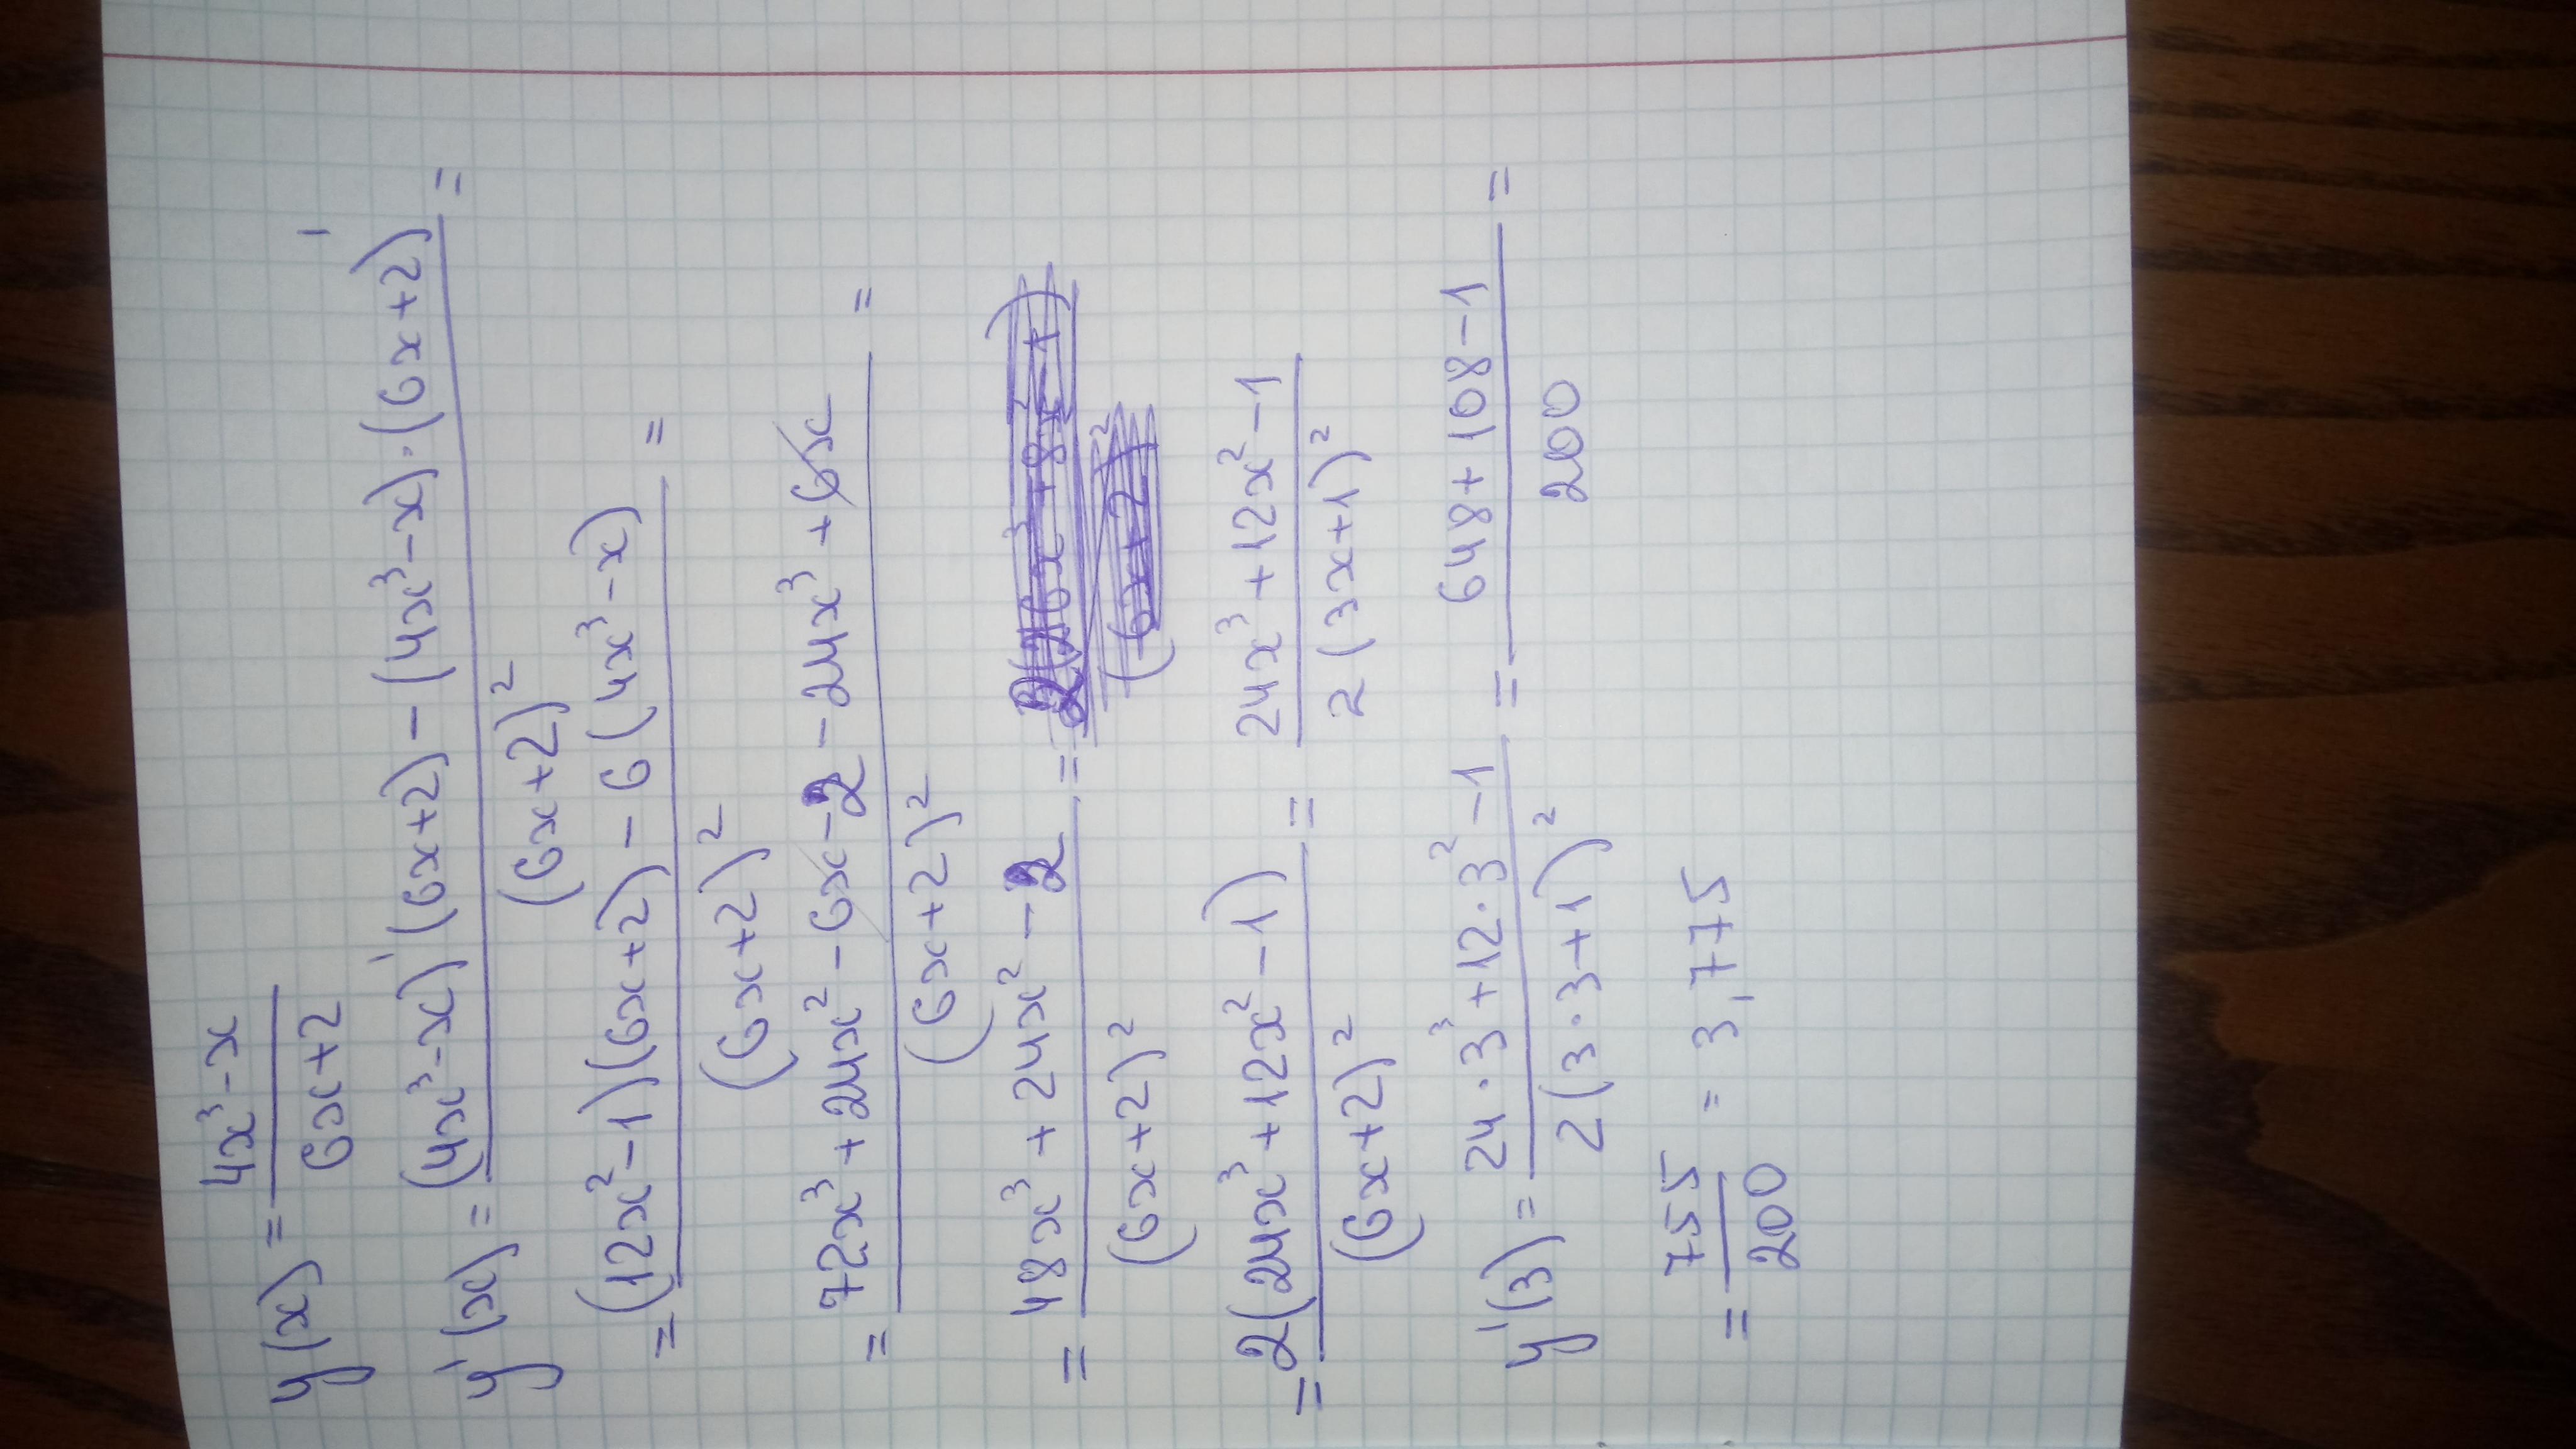 y(x) = (4x³-x)/(6x+2)
y'(x) = ((4x³-x)'(6x+2) - (4x³-x)·(6x+2)')/(6x+2)² =
= ((12x²-1)(6x+2) - 6(4x³-x))/(6x+2)² =
= (72x³+24x²-6x-2-24x³+6x)/(6x+2)² =
= (48x³+24x²-2)/(6x+2)² =
= 2(24x³+12x²-1)/(6x+2)² = (24x³+12x²-1)/2(3x+1)²
y'(3) = (24·3³+12·3²-1)/2(3·3+1)² = (648+108-1)/200 =
= 755/200 = 3,775